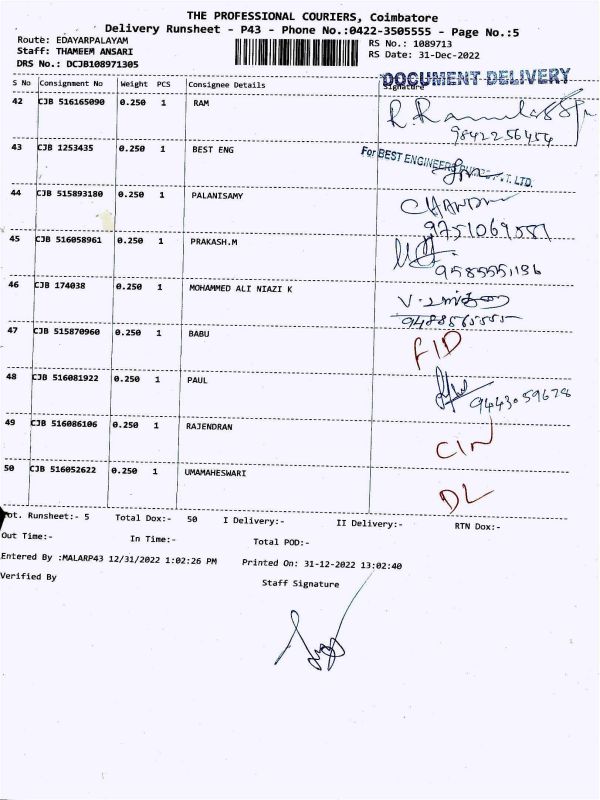 THE PROFESSIONAL COURIERS, Coimbatore
Delivery Runsheet - P43 - Phone No.:0422-3505555 - Page No.:5
Route: EDAYARPALAYAM
RS No.: 1089713
Staff: THAMEEM ANSARI
RS Date: 31-Dec-2022
DRS No.: DCJB108971305
DOCUMENT DELIVERY
S No Consignment No Weight PCS Consignee Details Signature
42 CJB 516165090 0.250 1 RAM
9842256454
43 CJB 1253435 0.250 1 BEST ENG
For BEST ENGINEERS T. LTD.
44 CJB 515893180 0.250 1 PALANISAMY
9751069581
45 CJB 516058961 0.250 1 PRAKASH.M
9585551136
46 CJB 174038 0.250 1 MOHAMMED ALI NIAZI K
9488565555
47 CJB 515870960 0.250 1 BABU
FID
48 CJB 516081922 0.250 1 PAUL
9443059678
49 CJB 516086106 0.250 1 RAJENDRAN
CIN
50 CJB 516052622 0.250 1 UMAMAHESWARI
DL
ot. Runsheet:- 5 Total Dox:- 50 I Delivery:- II Delivery:- RTN Dox:-
Out Time:- In Time:- Total POD:-
Entered By :MALARP43 12/31/2022 1:02:26 PM Printed On: 31-12-2022 13:02:40
Verified By
Staff Signature